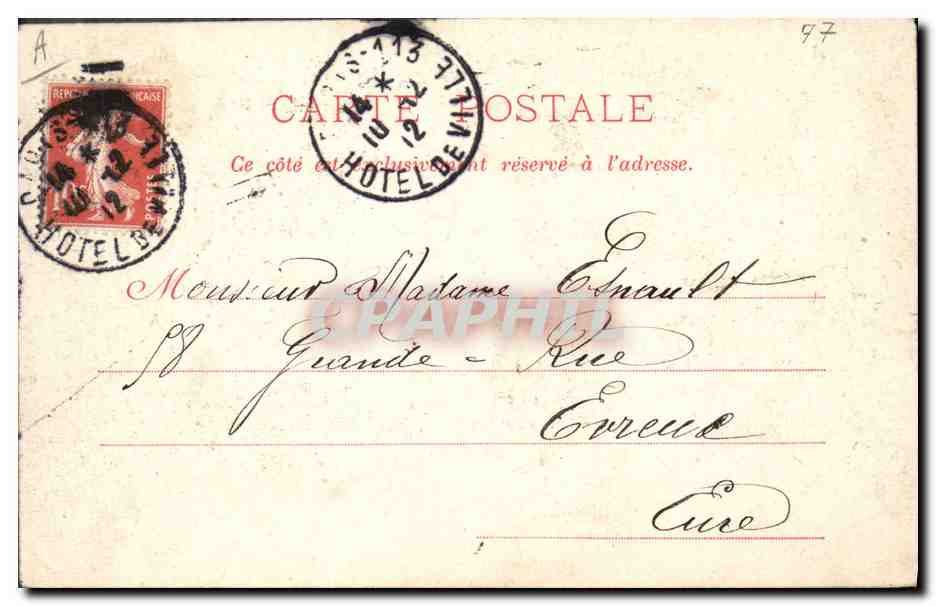 A
97
REPUBLIQUE FRANÇAISE
POSTES
PARIS-113 HOTEL DE VILLE
14
10 12
12
CARTE POSTALE
Ce côté est exclusivement réservé à l'adresse.
Monsieur Madame Esnault
58 Grande-Rue
Evreux
Eure
CPAPHIL